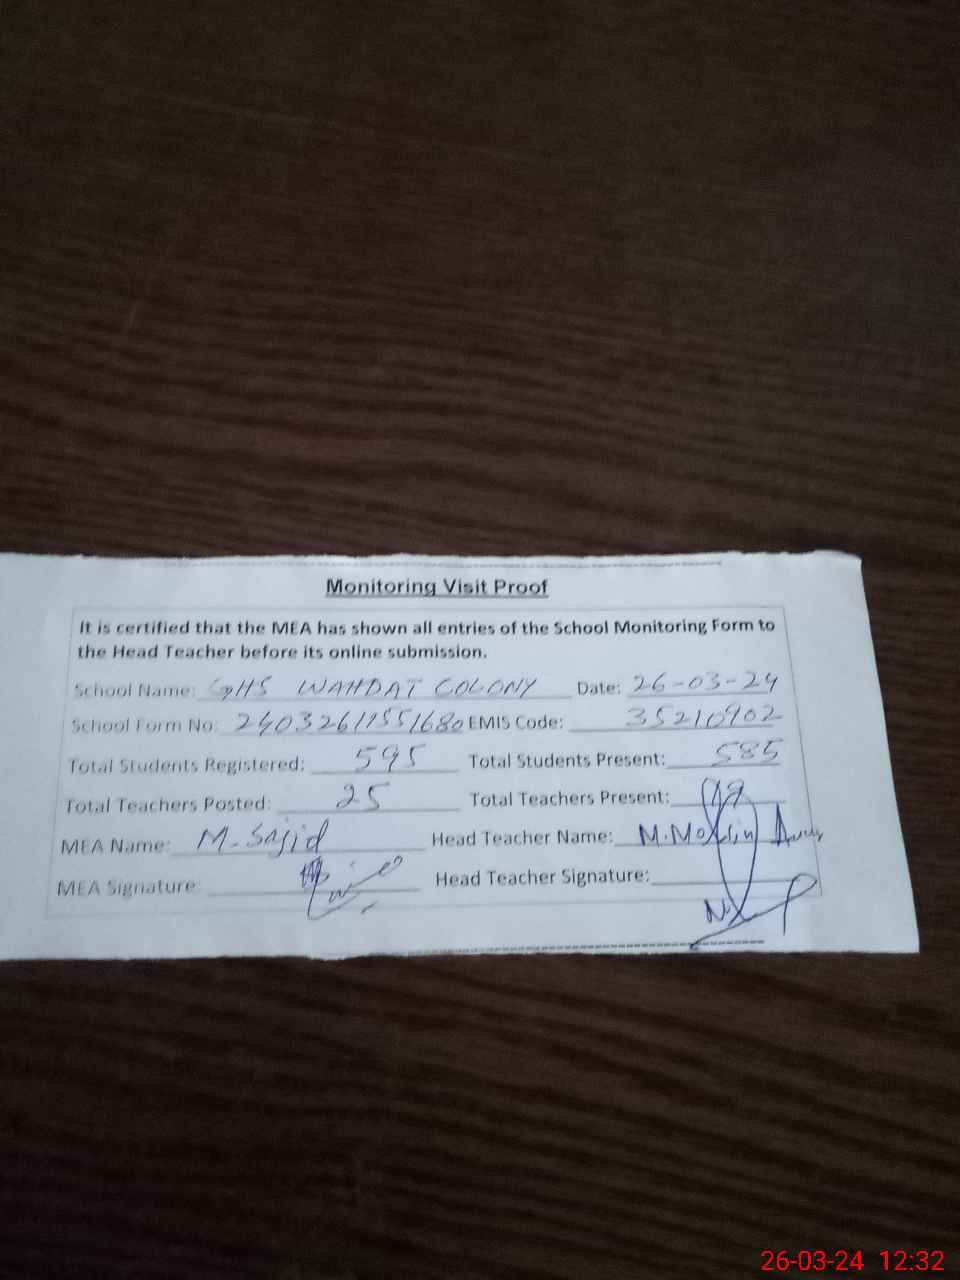 Monitoring Visit Proof
It is certified that the MEA has shown all entries of the School Monitoring Form to
the Head Teacher before its online submission.
School Name: GHS WAHDAT COLONY Date: 26-03-24
School Form No: 24032611551680 EMIS Code: 35210902
Total Students Registered: 595 Total Students Present: 585
Total Teachers Posted: 25 Total Teachers Present:
MEA Name: M. Sajid Head Teacher Name: M. Mohsin
MEA Signature: Head Teacher Signature:
26-03-24 12:32